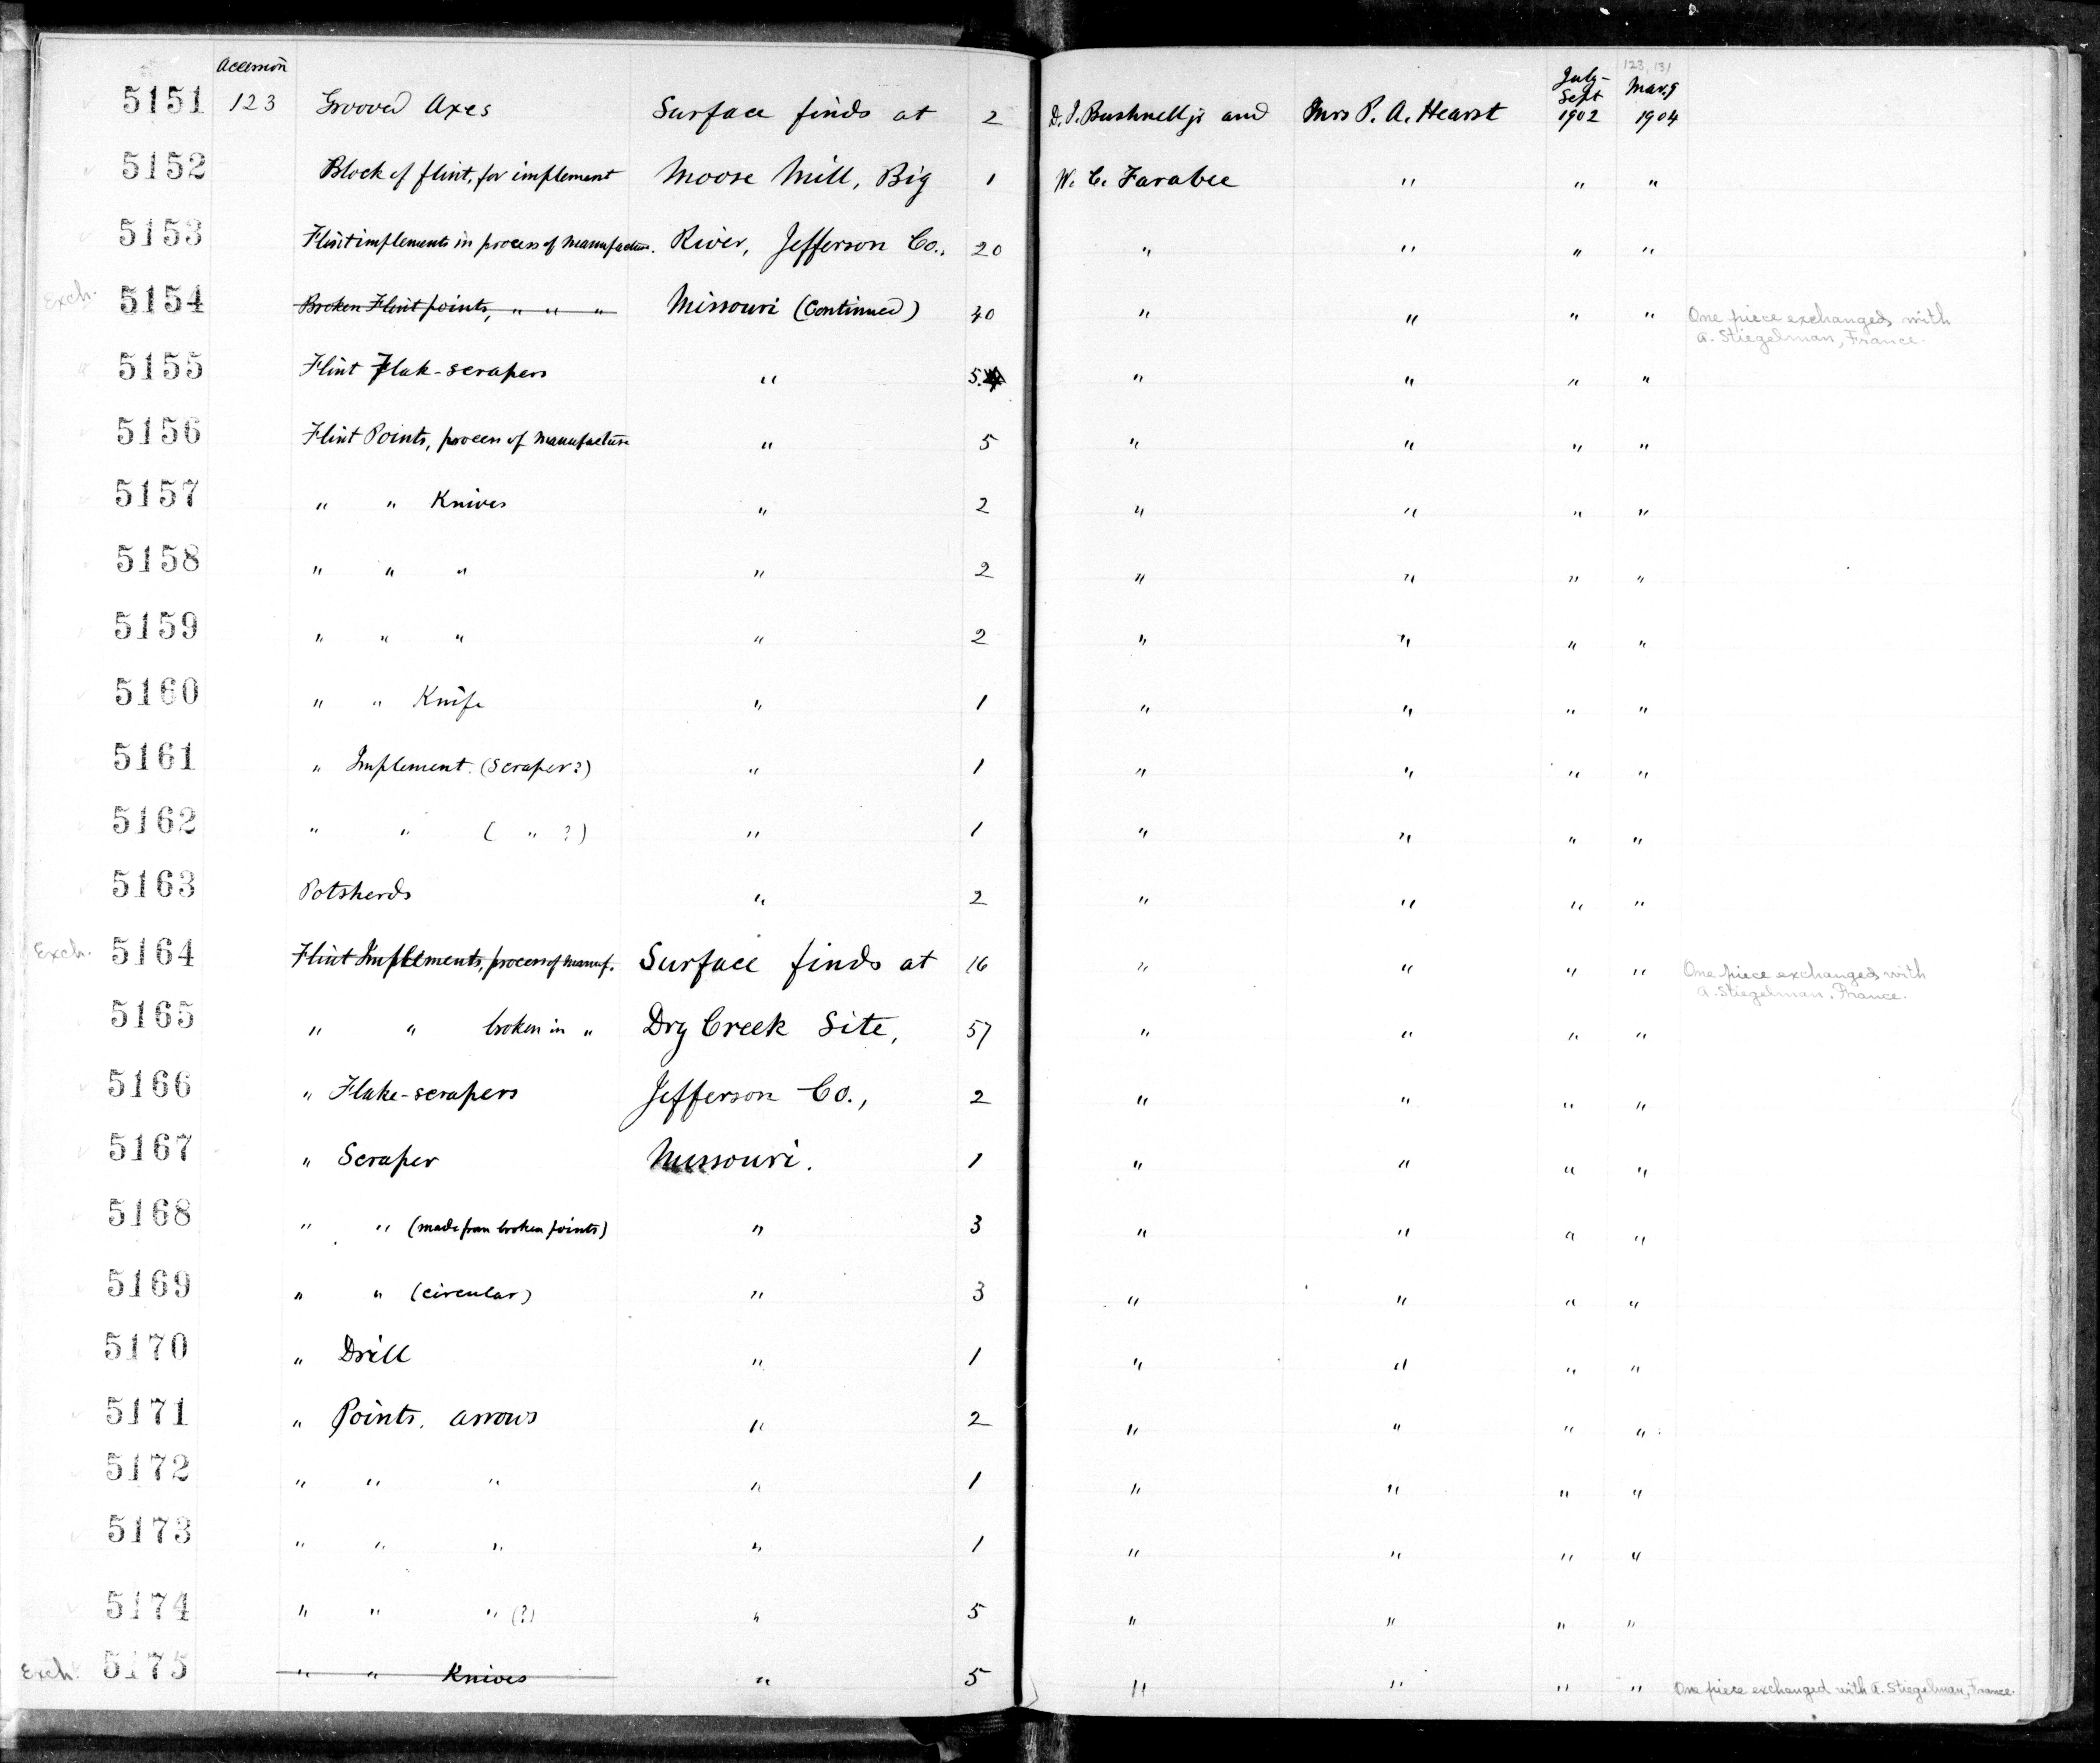 Accession 123, 131
5151 123 Grooved Axes Surface finds at 2 D. I. Bushnell jr and Mrs P. A. Hearst July-Sept 1902 Mar. 9 1904
5152 Block of flint, for implement Moose Mill, Big 1 W. C. Farabee " " "
5153 Flint implements in process of manufacture. River, Jefferson Co., 20 " " " "
Exch. 5154 Broken Flint points, " " " Missouri (Continued) 40 " " " " One piece exchanged with
A. Stiegelman, France.
5155 Flint Flak-scrapers " 5 " " " "
5156 Flint Points, process of manufacture " 5 " " " "
5157 " " Knives " 2 " " " "
5158 " " " " 2 " " " "
5159 " " " " 2 " " " "
5160 " " Knife " 1 " " " "
5161 " Implement. (Scraper?) " 1 " " " "
5162 " " ( " ?) " 1 " " " "
5163 Potsherds " 2 " " " "
Exch. 5164 Flint Implements, process of manuf. Surface finds at 16 " " " " One piece exchanged with
A. Stiegelman, France.
5165 " " broken in " Dry Creek Site, 57 " " " "
5166 " Flake-scrapers Jefferson Co., 2 " " " "
5167 " Scraper Missouri. 1 " " " "
5168 " " (made from broken points) " 3 " " " "
5169 " " (circular) " 3 " " " "
5170 " Drill " 1 " " " "
5171 " Points, arrows " 2 " " " "
5172 " " " " 1 " " " "
5173 " " " " 1 " " " "
5174 " " " (?) " 5 " " " "
Exch. 5175 " " Knives " 5 " " " " One piece exchanged with A. Stiegelman, France.